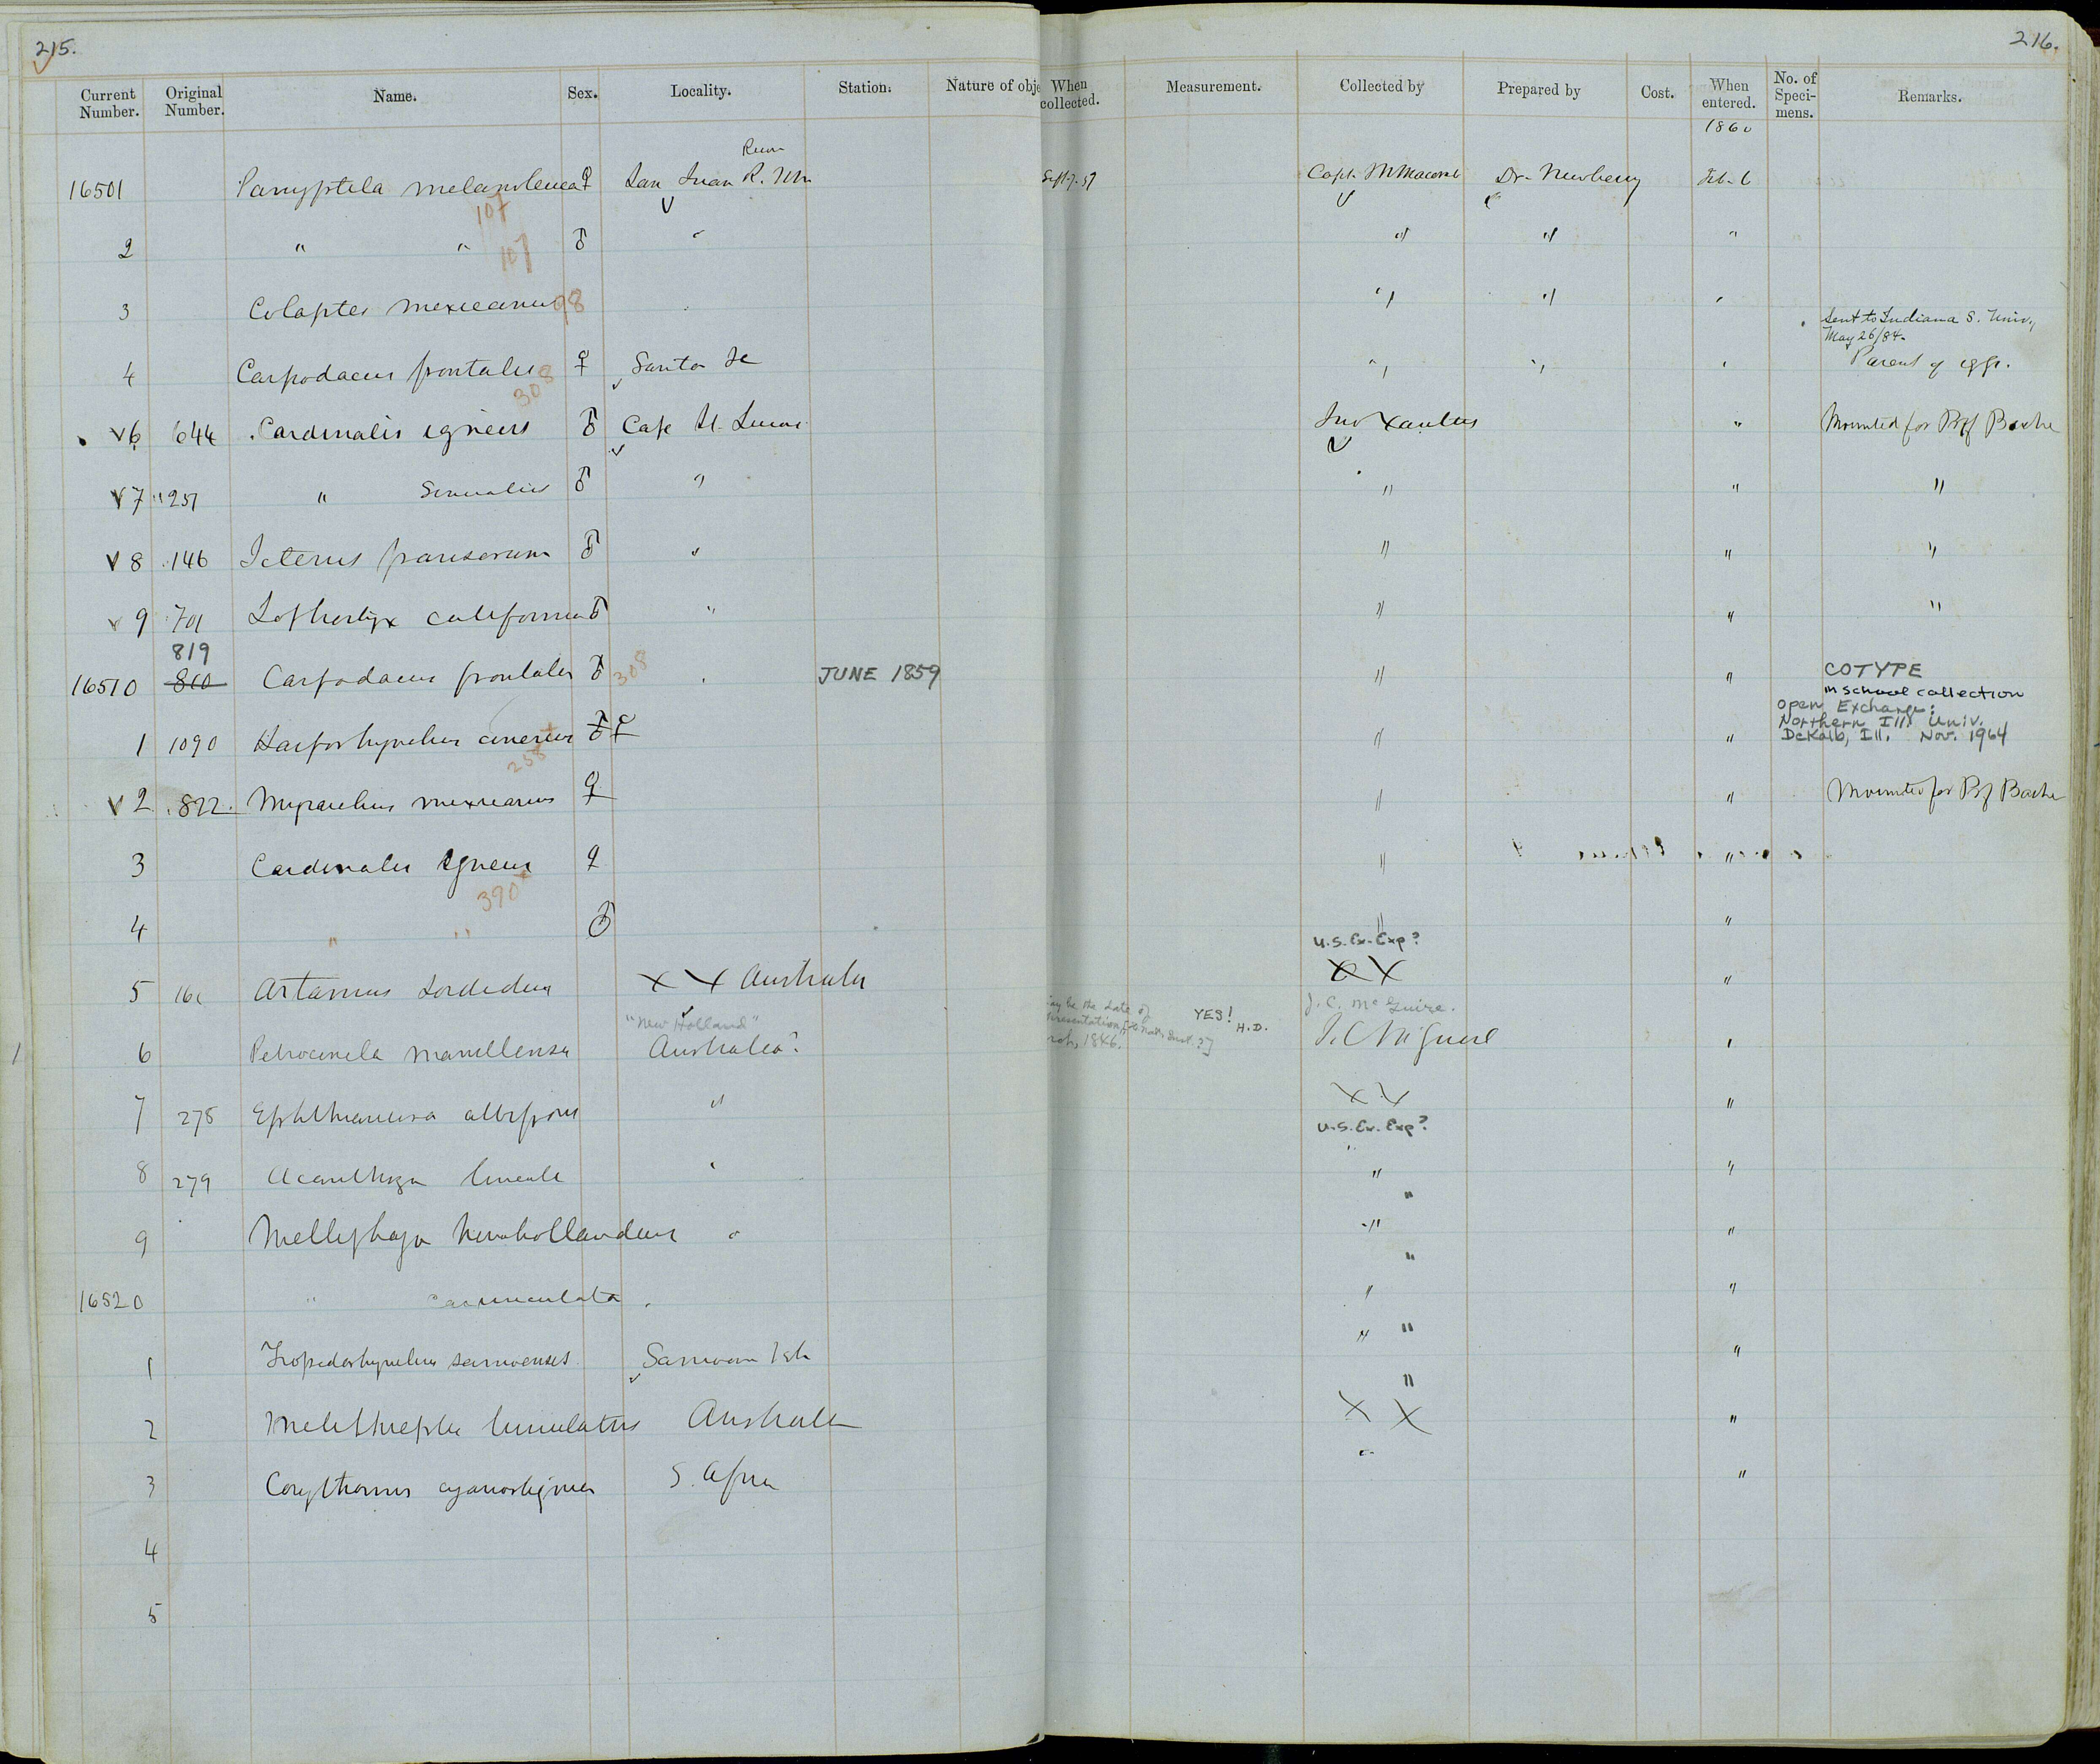 215.
216.
Current Number. Original Number. Name. Sex. Locality. Station. Nature of obje When collected. Measurement. Collected by Prepared by Cost. When entered. No. of Speci-mens. Remarks.
1860
16501 Panyptila melanoleuca ♀ San Juan R. NM Sept 7. 59 Capt. Macomb Dr. Newberry Feb. 6
107
2 " " ♂ " " " "
107
3 Colaptes mexicanus 98 " " " "
Sent to Indiana S. Univ., May 26/84.
4 Carpodacus frontalis ♀ Santa Fe " " " Parent of eggs.
308
6 644 Cardinalis igneus ♂ Cape St. Lucas Jno Xantus " Mounted for Prof Bache
7 251 " ♂ " " " "
8 146 Icterus parisorum ♂ " " " "
9 701 Lophortyx californicus ♂ " " " "
819
16510 810 Carpodacus frontalis ♂ 308 " JUNE 1859 " " COTYPE
in school collection
1 1090 Harporhynchus cinereus ♂ ♀ " " Open Exchange: Northern Ill. Univ. DeKalb, Ill. Nov. 1964
258
2 822. Myiarchus mexicanus ♀ " " Mounted for Prf Bache
3 Cardinalis igneus ♀ " "
390
4 " " ♂ " "
U.S. Ex. Exp?
5 Artamus sordidus X X Australia X X "
"New Holland" may be the date of presentation YES! H.D. J. C. McGuire.
6 Petrocincla manillensis Australia? 1846. J. C McGuire "
7 278 Ephthianura albifrons " X X "
U.S. Ex. Exp?
8 279 Acanthiza lineata " " "
9 Meliphaga novahollandiae " " "
16520 " carunculata " " "
1 Tropidorhynchus samoensis Samoan Isls " " "
2 Melithreptus lunulatus Australia X X "
3 Corythornis cyanostigma S. Africa " "
4
5